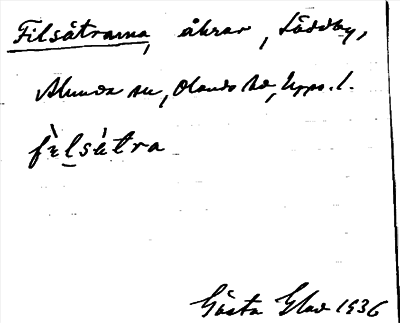 Filsätrarna, åkrar, Löddby,
Alunda sn, Olands hd, Upps. l.
fìlsétra
Gösta Glad 1936